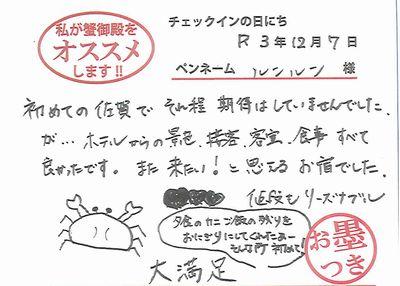 私が蟹御殿を
オススメ
します!!
チェックインの日にち
R3年12月7日
ペンネーム ルンルン 様
初めての佐賀で それ程 期待はしていませんでした、
が… ホテルからの景色、接客、客室、食事 すべて
良かったです。また 来たい！と思える お宿でした。
値段もリーズナブル
夕食のカニご飯の残りを
おにぎりにしてくれたぁー
そんな所 初めて!
大満足
お墨
つき